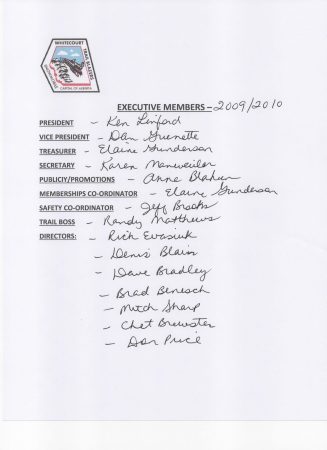 WHITECOURT
TRAIL BLAZERS
CAPITAL OF ALBERTA
EXECUTIVE MEMBERS – 2009/2010
PRESIDENT - Ken Linford
VICE PRESIDENT - Dan Guenette
TREASURER - Elaine Gunderson
SECRETARY - Karen Manweiler
PUBLICIY/PROMOTIONS - Anne Blahun
MEMBERSHIPS CO-ORDINATOR - Elaine Gunderson
SAFETY CO-ORDINATOR - Jeff Brooks
TRAIL BOSS - Randy Matthews
DIRECTORS: - Rick Evasiuk
- Denis Blain
- Dave Bradley
- Brad Benesch
- Mitch Sharp
- Chet Brewster
- Don Price